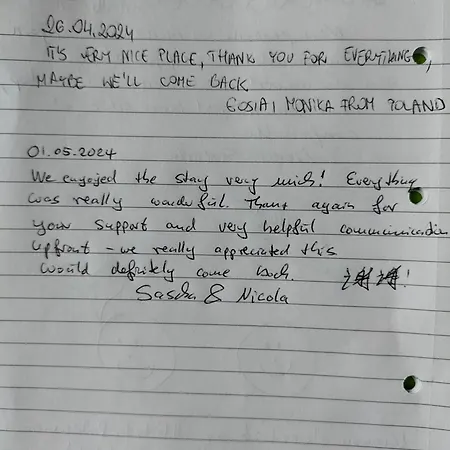 26.04.2024
IT'S VERY NICE PLACE, THANK YOU FOR EVERYTHING,
MAYBE WE'LL COME BACK
GOSIA I MONIKA FROM POLAND
01.05.2024
We enjoyed the stay very much! Everything
was really wonderful. Thank again for
your support and very helpful communication
upfront - we really appreciated this
Would definitely come back. !
Sascha & Nicola